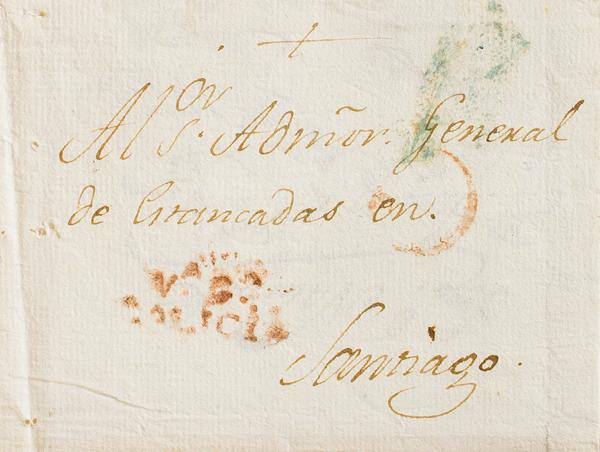 Al S.ᵒʳ Admõr. General
de Estancadas en.
GALICIA
Santiago.